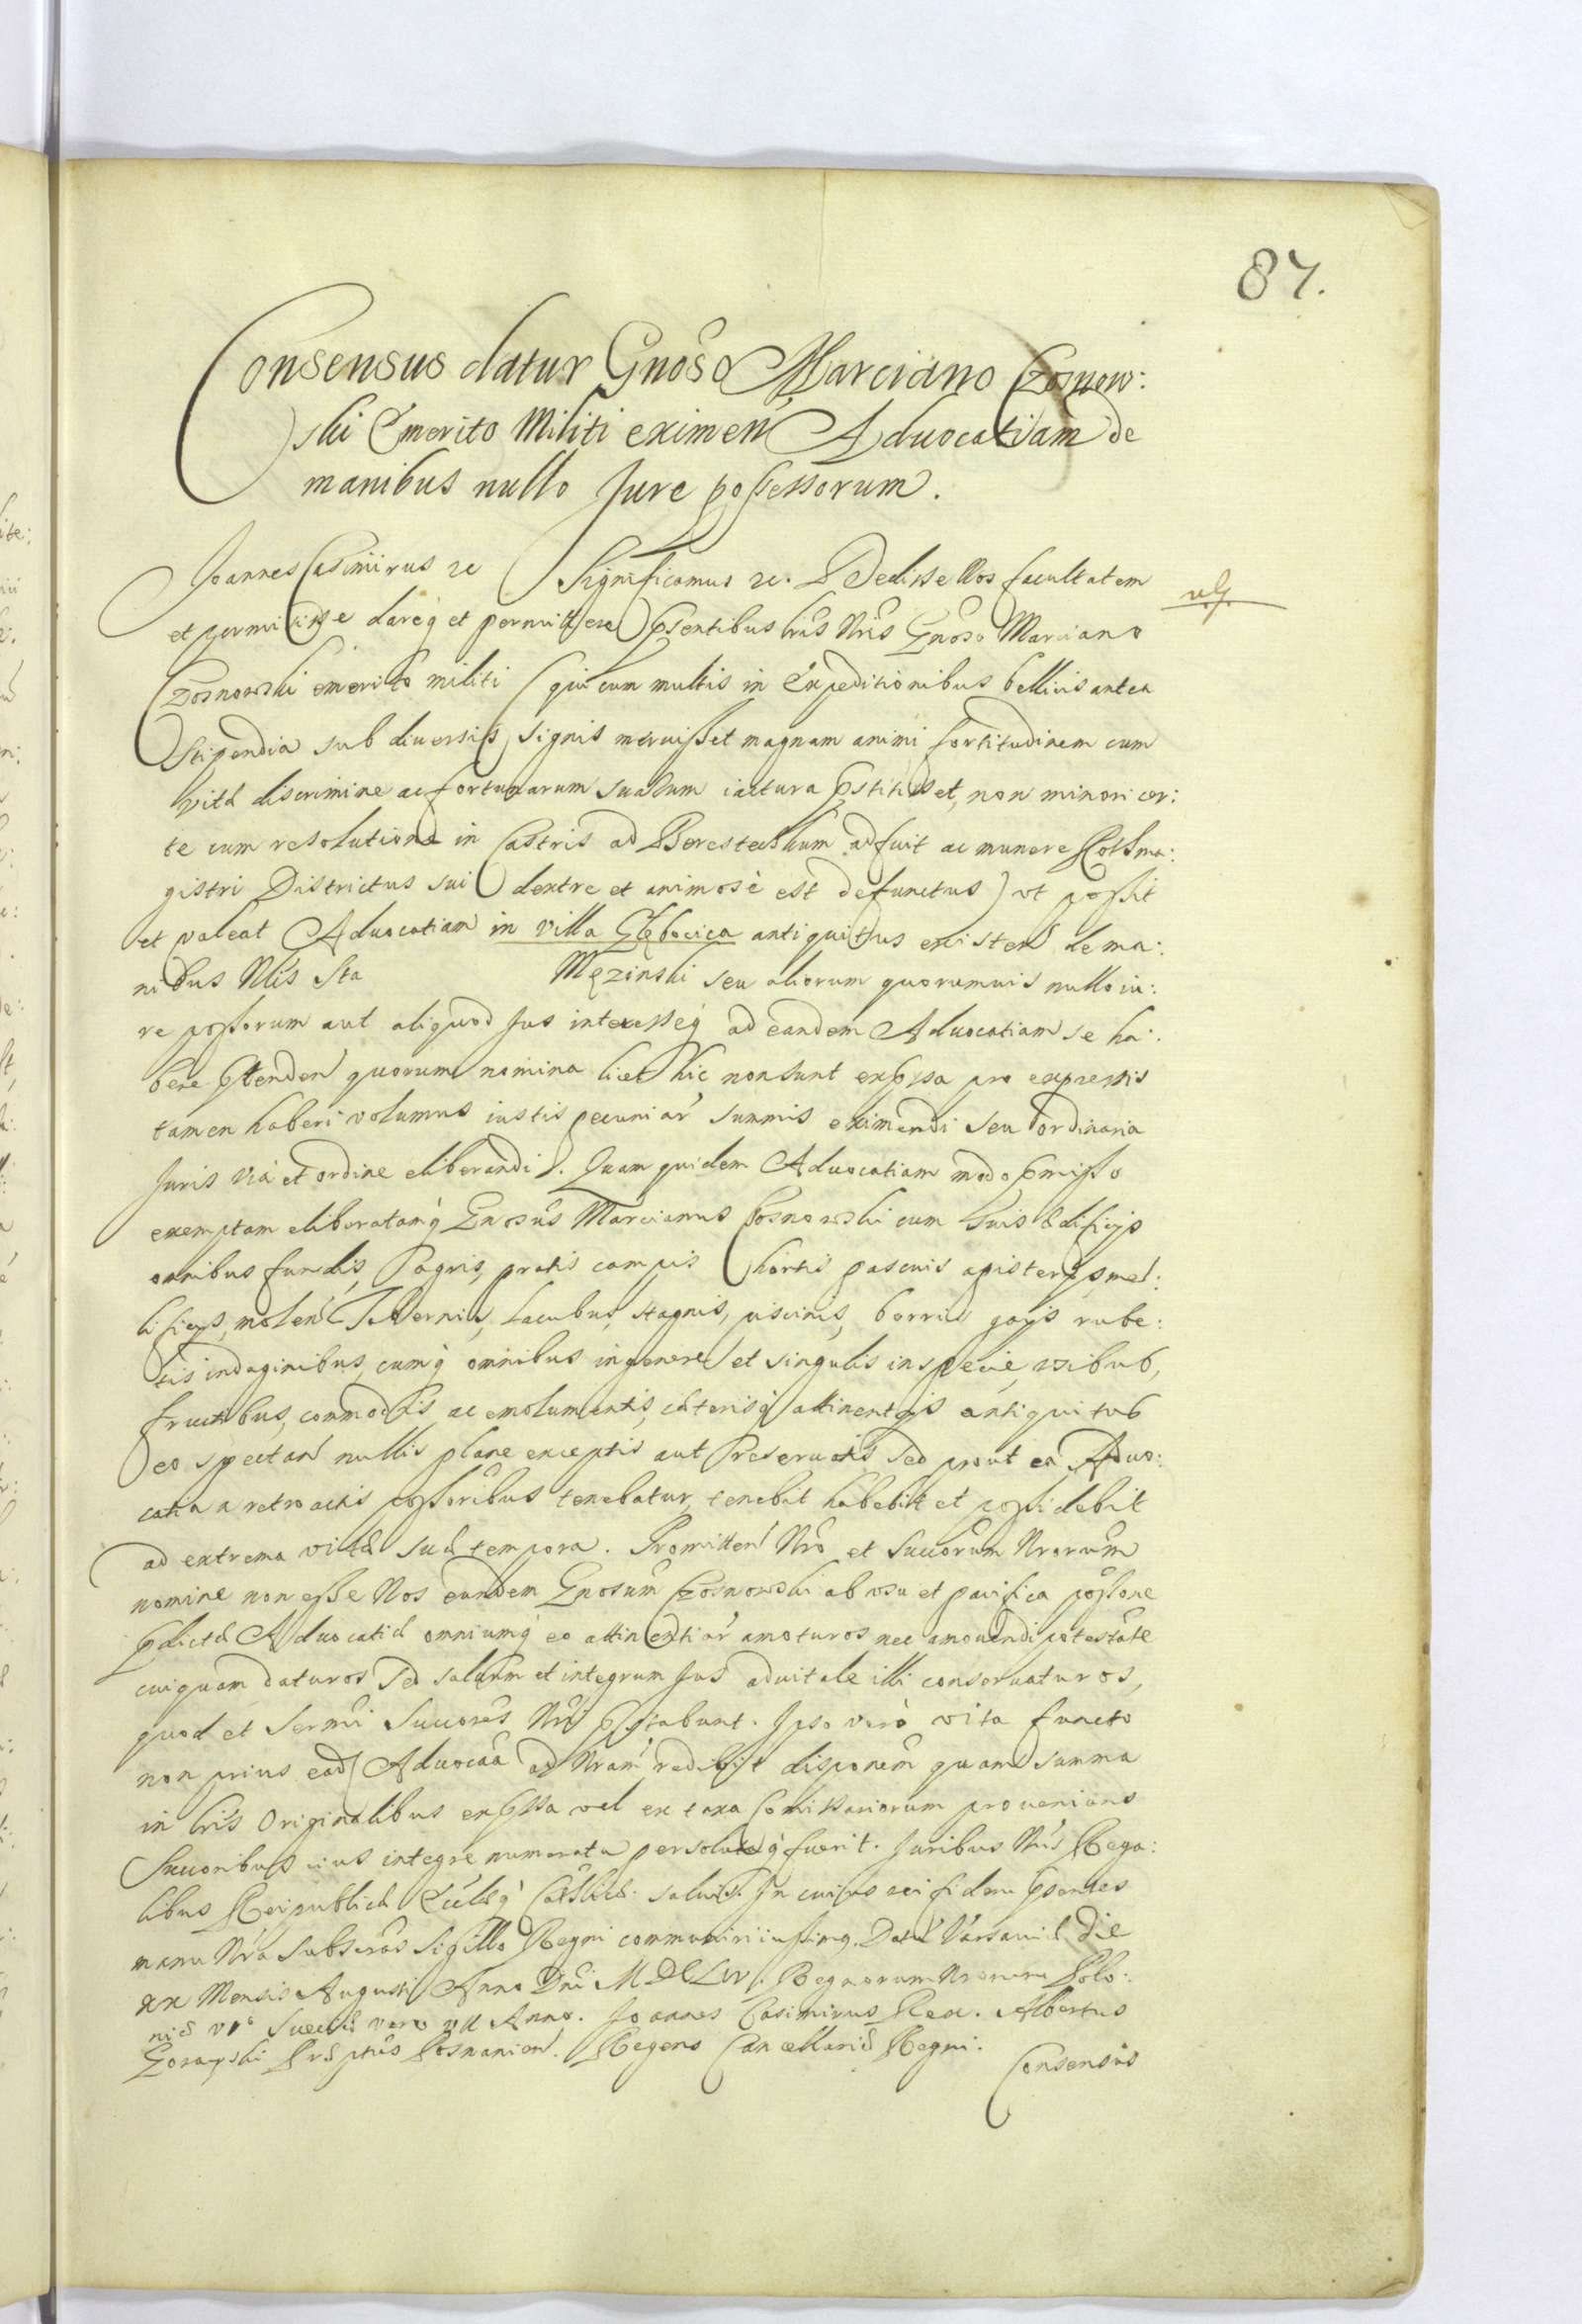 87.
Consensus datur Gnoso Marciano Czosnow:
ski Emerito Militi eximen Aduocatiam de
manibus nullo Jure possessorum.
Joannes Casimirus rc Significamus rc. Dedisse Nos facultatem
et permisisse dareq et permittere psentibus lris Nris Gnoso Marciano
Czosnowski emerito militi (qui cum multis in Expeditionibus bellicis antea
Stipendia sub diuersis signis meruisset magnam animi fortitudinem cum
vitæ discrimine ac fortunarum suarum iactura pstitisset, non minori cer:
te cum resolutione in Castris ad Beresteczkum adfuit ac munere Rothma:
gistri Districtus sui dextre et animosè est defunctus) vt possit
et valeat Aduocatiam in villa Głębocica antiquitus existen de ma:
nibus Nlis Sta Męzinski seu aliorum quorumuis nullo iu:
re possorum aut aliquod Jus interesseq ad eandem Aduocatiam se ha:
bere ptenden quorum nomina licet hic non sunt expssa pro expressis
tamen haberi volumus iustis pecuniar summis eximendi seu ordinaria
Juris via et ordine eliberandi. Quam quidem Aduocatiam modo pmisso
exemptam eliberatamq Gnosus Marcianus Czosnowski cum suis ædificijs
omnibus fundis, agris, pratis campis hortis pascuis apisterijs, mel:
lificijs, molen Tabernis, lacubus, stagnis, piscinis, borris gajis rube:
tis indaginibus, cumq omnibus in genere et singulis in specie, vsibus,
fructibus, commodis ac emolumentis, cæterisq attinentijs antiquitus
eo spectan nullis plane exceptis aut Reseruatis sed prout ea Aduo:
catia a retroactis possoribus tenebatur, tenebit habebit et possidebit
ad extrema vitæ suæ tempora. Promitten Nro et Succorum Nrorum
nomine non esse Nos eundem Gnosum Czosnowski ab vsu et pacifica possone
pdictæ Aduocatiæ omniumq eo attinentiar amoturos nec amouendi potestate
cuiquam daturos sed saluum et integrum Jus aduitale illi conseruaturos,
quod et Sermi Succores Nri pstabunt. Ipso verò vita functo
non prius ead Aduocaa ad Nram redibit disponem quam summa
in lris Originalibus expssa vel ex taxa Comissariorum proueniens
Succoribus eius integre numerata persolutaq fuerit. Juribus Nris Rega:
libus Reipublicæ Eccliæq Cathlicæ saluis. In cuius rei fidem psentes
manu Nra subscras Sigillo Regni communiri iussimg. Datt Varsauiæ die
xx Mensis Augusti Anno Dni MDCLIV. Regnorum Nrorum Polo:
niæ VI Sueciæ vero VII Anno. Joannes Casimirus Rex. Albertus
Gorayski Posnanien. Regens Cancellariæ Regni.
Consensus